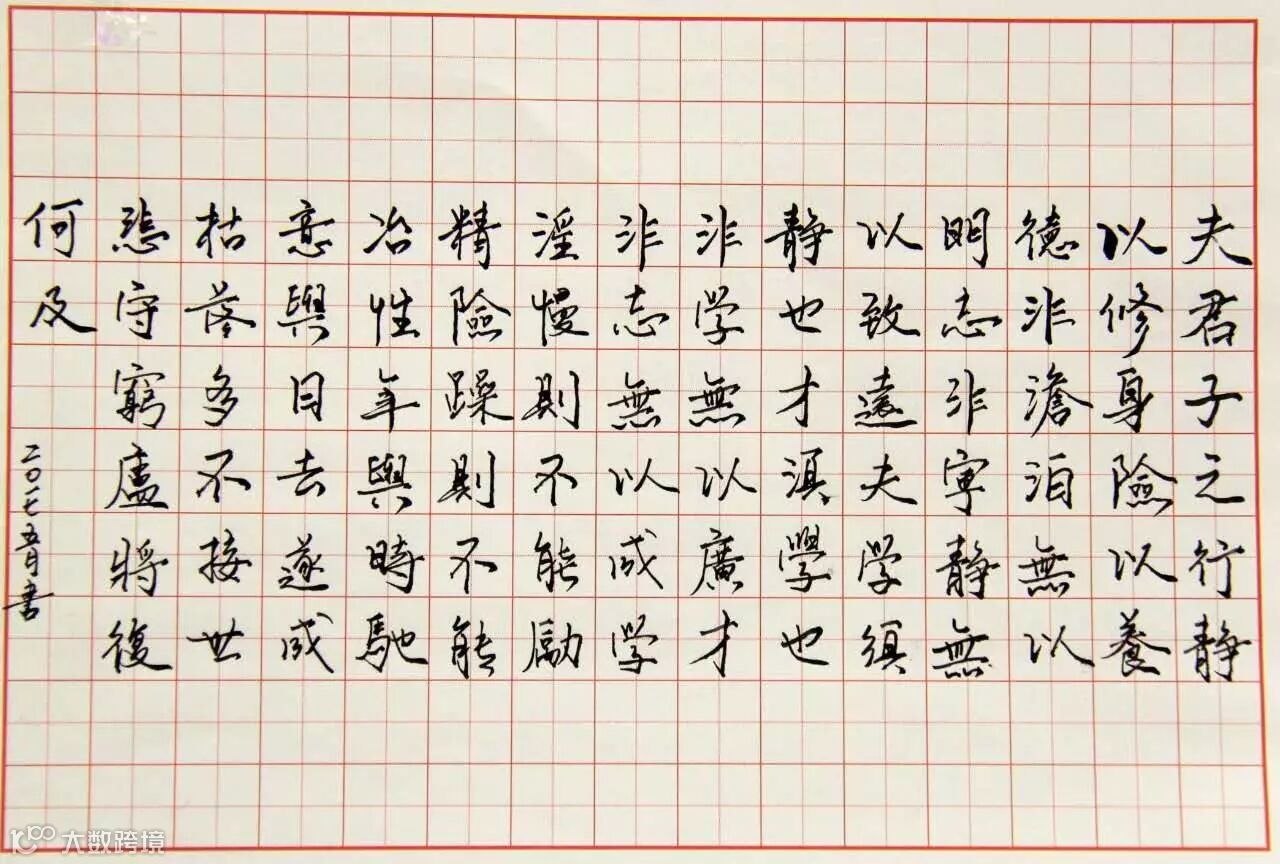 夫君子之行静
以修身險以養
德非澹泊無以
明志非寧静無
以致遠夫学須
静也才湏學也
非学無以廣才
非志無以成学
淫慢則不能勵
精險躁則不能
冶性年與時馳
意與日去遂成
枯落多不接世
悲守窮盧將復
何及
二〇一七五月書
大数跨境